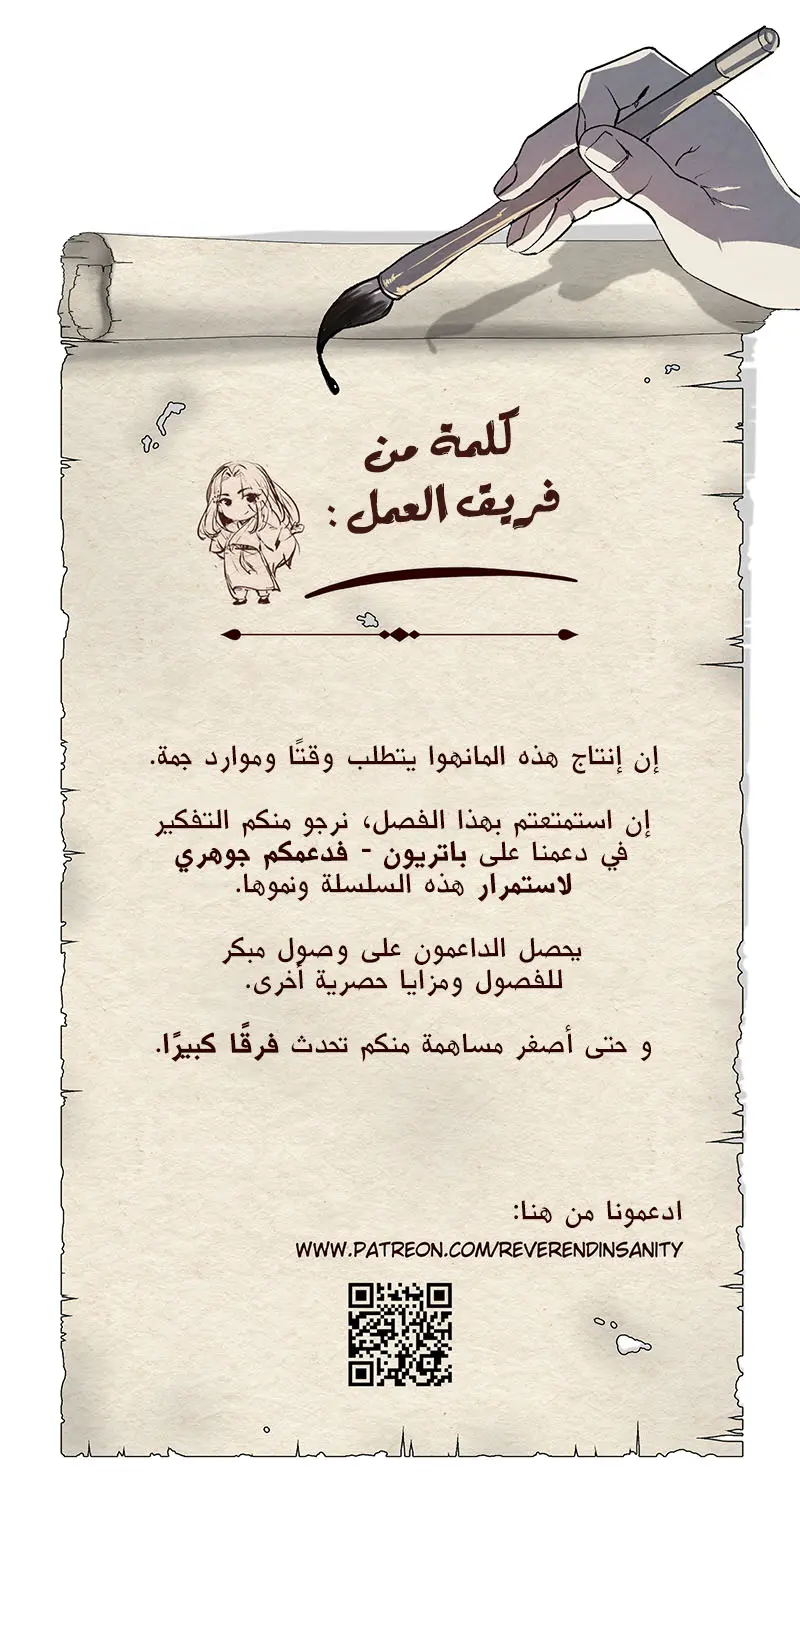 كلمة من
فريق العمل :
إن إنتاج هذه المانهوا يتطلب وقتًا وموارد جمة.
إن استمتعتم بهذا الفصل، نرجو منكم التفكير
في دعمنا على باتريون - فدعمكم جوهري
لاستمرار هذه السلسلة ونموها.
يحصل الداعمون على وصول مبكر
للفصول ومزايا حصرية أخرى.
و حتى أصغر مساهمة منكم تحدث فرقًا كبيرًا.
ادعمونا من هنا:
WWW.PATREON.COM/REVERENDINSANITY